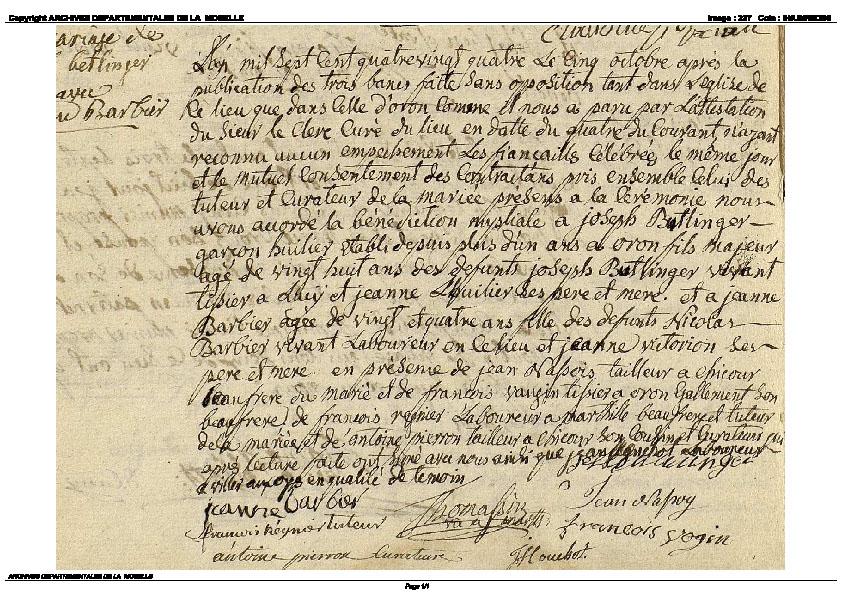 Copyright ARCHIVES DEPARTEMENTALES DE LA MOSELLE
Image : 237 Cote :
mariage de
betlinger
avec
Barbier
L'an mil sept Cent quatrevingt quatre Le Cinq octobre après la
publication des trois bans faite sans opposition tant dans L'eglise de
Ce lieu que dans Celle d'oron Comme il nous a paru par L'attestation
du Sieur le Clerc Curé du lieu en datte du quatre du Courant, n'ayant
reconnu aucun empechement Les fiançailles Célébrées le même jour
et le mutuel Consentement des Contractans pris ensemble Celui des
tuteur et Curateur de la mariée présens a la Cérémonie nous
avons accordé la bénédiction nuptiale a joseph Butlinger
garçon huilier établi depuis plus d'un ans a oron fils majeur
agé de vingt huit ans des defunts joseph Butlinger vivant
tissier a Lucy et jeanne L'huilier Ses pere et mere. et a jeanne
Barbier âgée de vingt et quatre ans fille des defunts Nicolas
Barbier vivant Laboureur en ce lieu et jeanne victorion Ses
pere et mere. en présence de jean Nassois tailleur a chicour
beaufrere du marié et de françois vaugin tissier a oron Egallement Son
beaufrere, de françois regnier Laboureur a marthile beaufrere et tuteur
de la mariée, et de antoine pierron tailleur a chicour Son Cousin et Curateur qui
après lecture faite ont signé avec nous ainsi que jean Laboureur
a viller en qualité de temoin
jeanne barbier
Jean Nassoy
francois Régnier tuteur
Thomassin
françois vogin
antoine pierron Curateure
J Houchot.
ARCHIVES DEPARTEMENTALES DE LA MOSELLE
Page 1/1